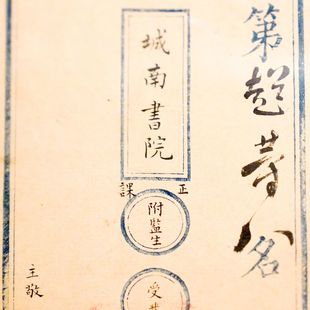 第超等八名
城南書院
正課
附監生
受
主敬